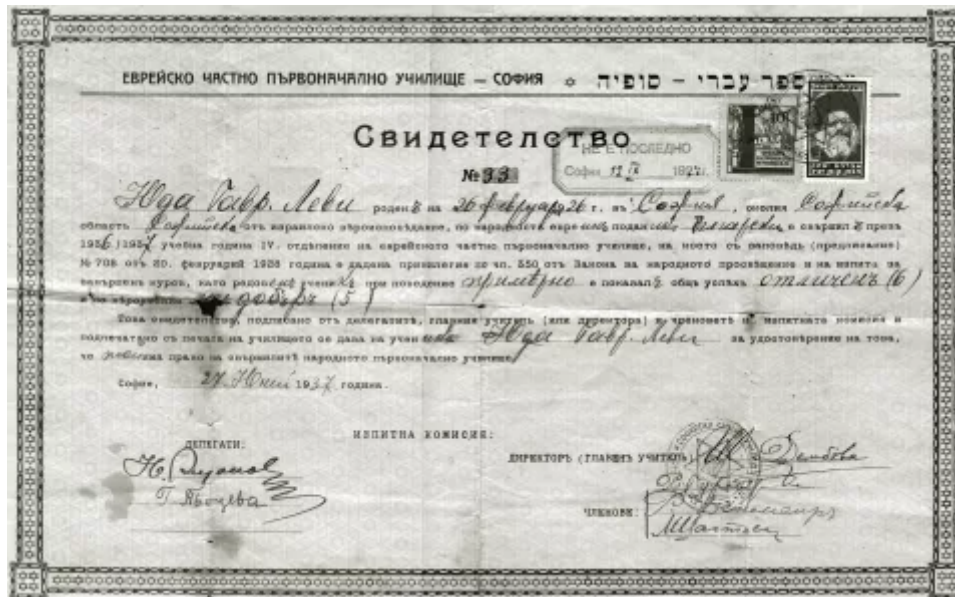 ЕВРЕЙСКО ЧАСТНО ПЪРВОНАЧАЛНО УЧИЛИЩЕ – СОФИЯ ✡ ספר עברי – סופיה
Свидетелство
НЕ Е ПОСЛЕДНО
София 12 IX
№ 33
Юда Гавр. Леви роденъ на 26 февруари 26 г. въ София, околия Софийска
область Софийска отъ израилско вѣроизповѣдание, по народность евреинъ поданикъ български е свършилъ презъ
1936/1937 учебна година IV. отдѣление на еврейското частно първоначално училище, на което съ заповѣдь (предписание)
№ 708 отъ 20. февруарий 1928 година е дадена привилегия по чл. 350 отъ Закона на народното просвѣщение и на изпита на
свършенъ курсъ, като редовенъ ученикъ при поведение примѣрно е показалъ общъ успѣхъ отличенъ (6)
добъръ (5)
Това свидетелство, подписано отъ делегатите, главния учитель (или директора) и членоветѣ на изпитната комисия и
подпечатано съ печата на училището се дава на ученика Юда Гавр. Леви за удостовѣрение на това,
че право на свършилитѣ народното първоначално училище.
София, 27 Юний 1937 година.
ИЗПИТНА КОМИСИЯ:
ДЕЛЕГАТИ:
ДИРЕКТОРЪ (ГЛАВЕНЪ УЧИТЕЛЬ)
ЧЛЕНОВЕ: